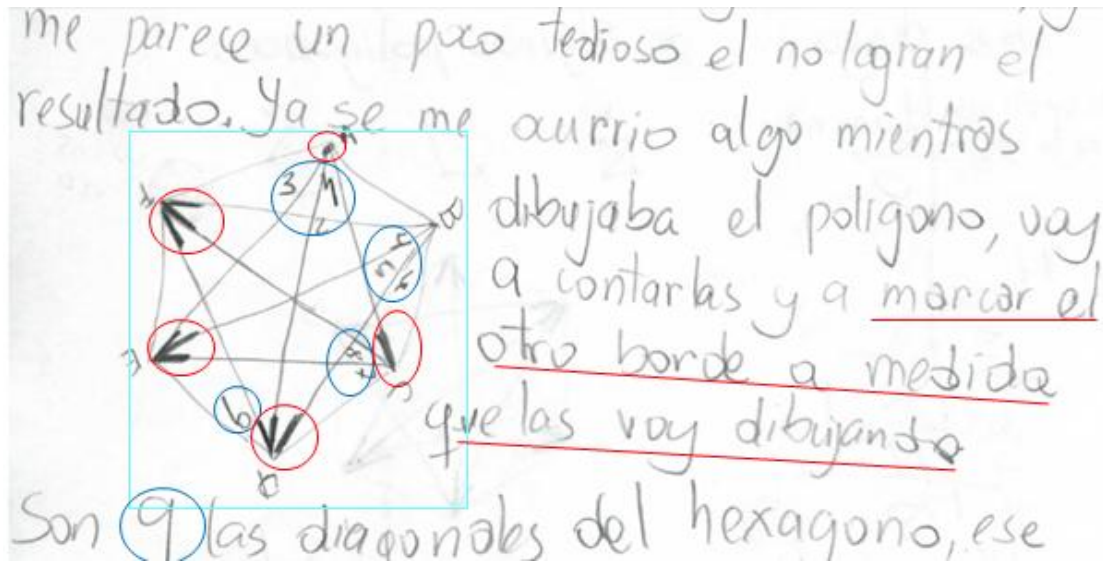 me parece un poco tedioso el no logran el
resultado. Ya se me ocurrio algo mientras
dibujaba el poligono, voy
a contarlas y a marcar el
otro borde a medida
que las voy dibujando
3
1
2
4
5
6
Son 9 las diagonales del hexagono, ese